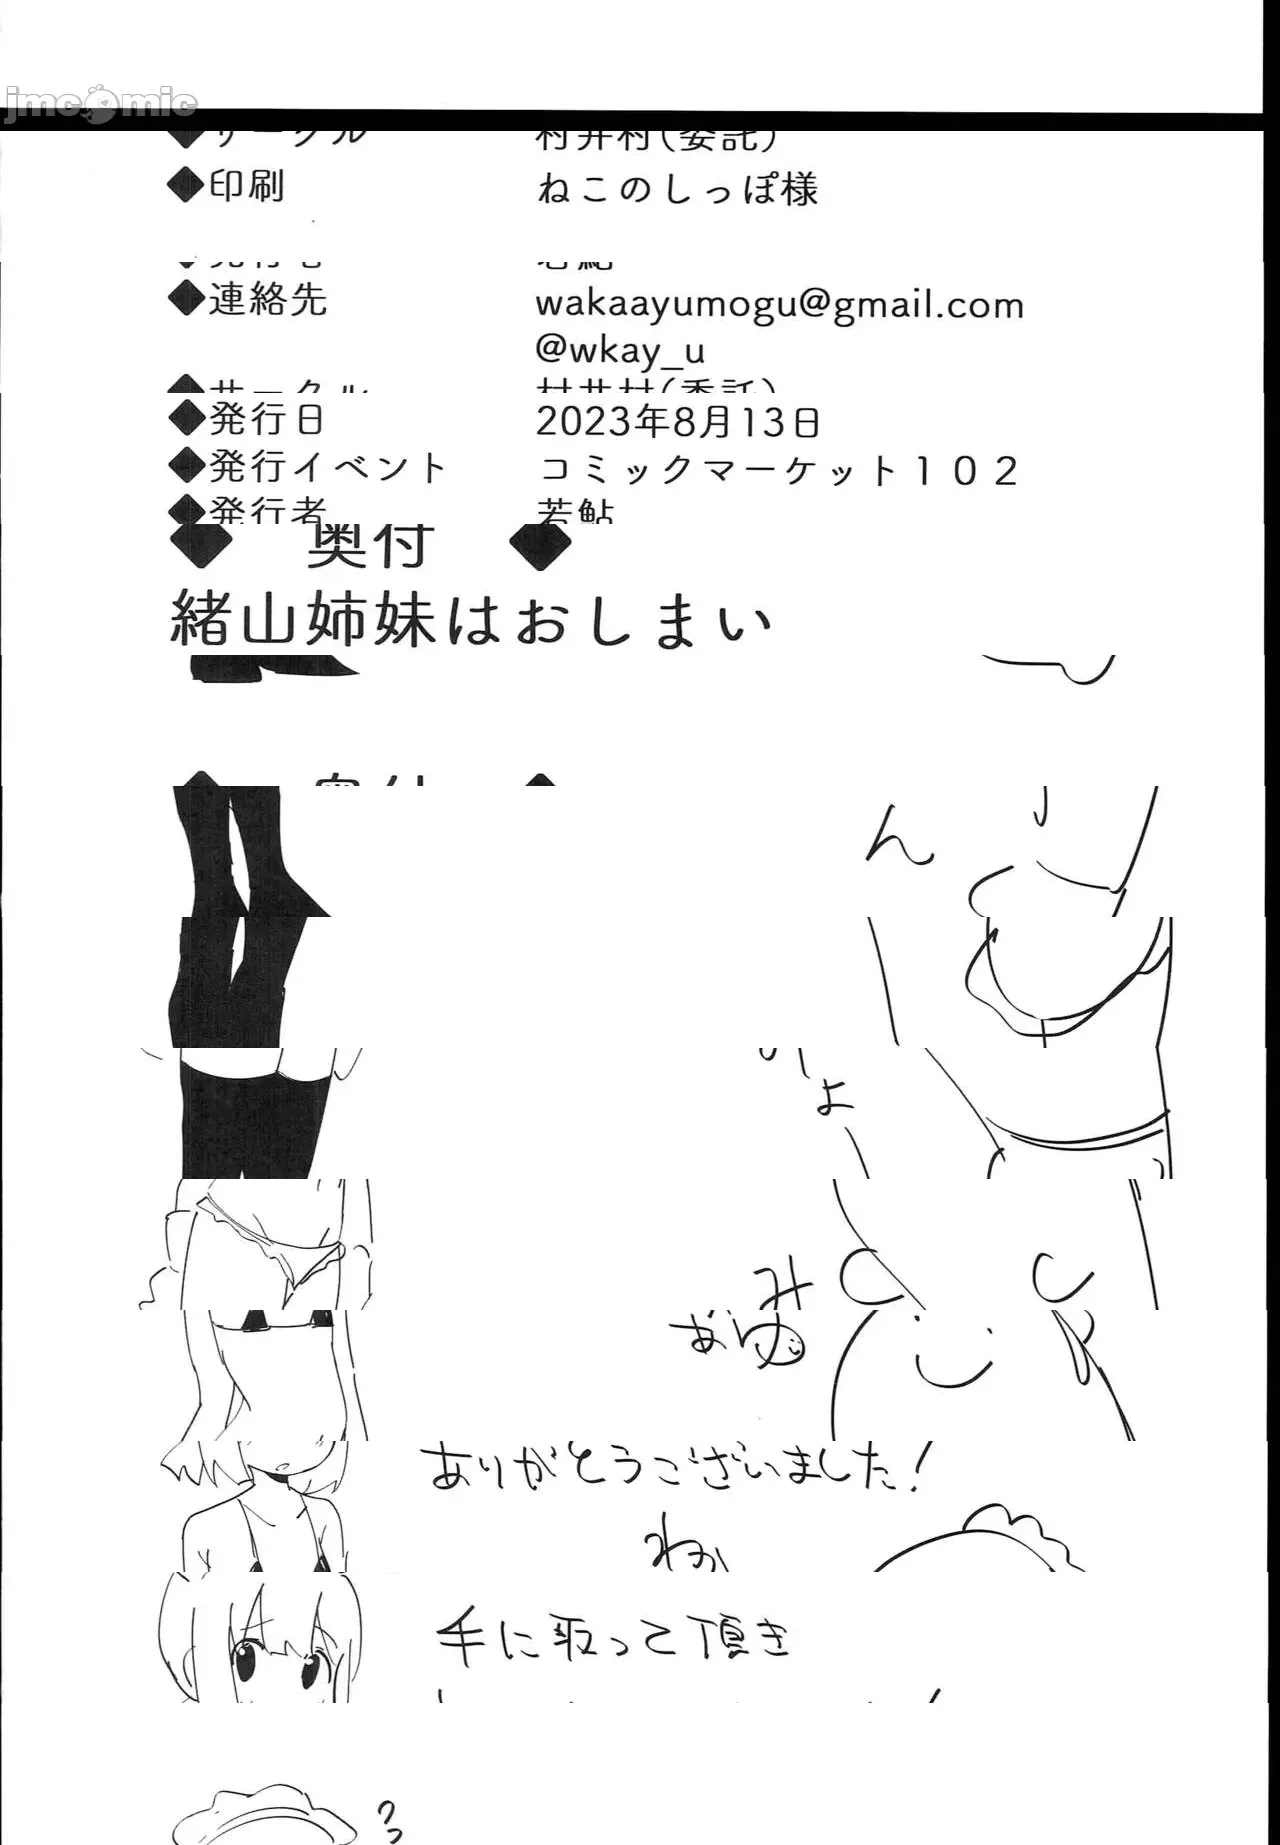 jmcomic
◆サークル 村井村(委託)
◆印刷 ねこのしっぽ様
◆連絡先 wakaayumogu@gmail.com
@wkay_u
◆サークル 村井村(委託)
◆発行日 2023年8月13日
◆発行イベント コミックマーケット１０２
◆発行者 若鮎
◆ 奥付 ◆
緒山姉妹はおしまい
ん
よ
み
ありがとうございました!
わか
手に取って頂き